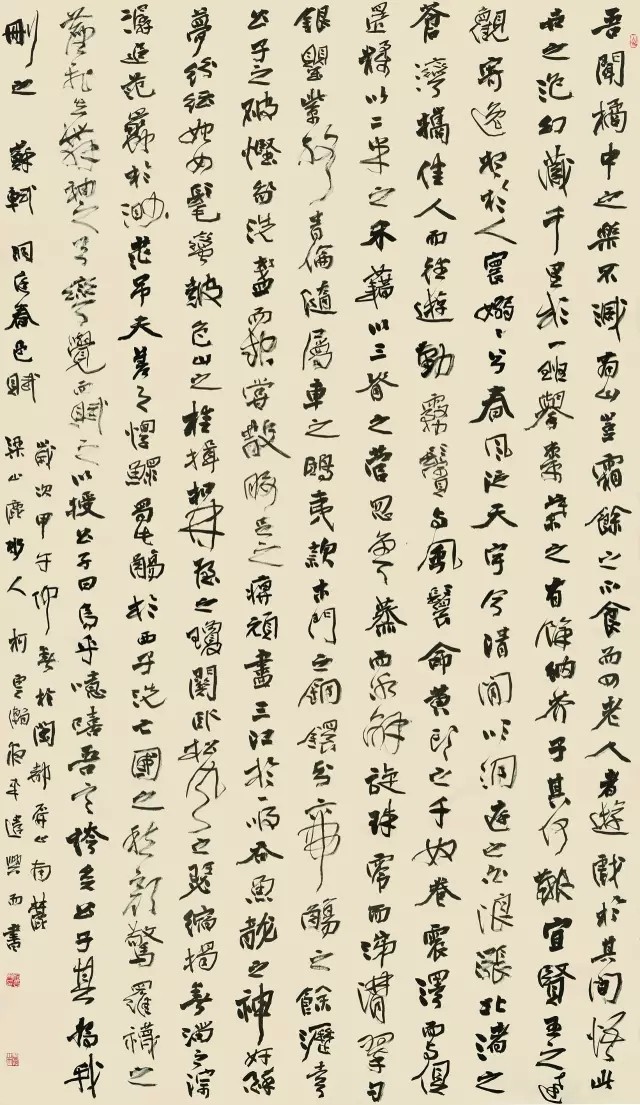 吾聞橘中之樂不減商山豈霜餘之不食而四老人者遊戲於其間悟此
世之泡幻藏千里於一斑舉棗葉之有餘納芥子其何艱宜賢王之達
觀寄逸想於人寰嫋〻兮春風泛天宇兮清閒吹洞庭之白浪漲北渚之
蒼灣攜佳人而往遊勤霧鬢與風鬟命黃頭之千奴卷震澤而與俱
還糅以二米之禾藉以三脊之菅忽雲蒸而冰解旋珠零而涕潸翠勺
銀罌紫絡青倫隨屬車之鴟夷款木門之銅鐶分帝觴之餘瀝幸
公子之破慳我洗盞而起嘗散腰足之痹頑盡三江於一吸吞魚龍之神奸醉
夢紛紜始如髦蠻鼓包山之桂楫扣林屋之瓊關臥松風之瑟縮揭春溜之淙
潺追范蠡於渺茫吊夫差之惸鰥屬此觴於西子洗亡國之愁顏驚羅襪之
塵飛失舞袖之弓彎覺而賦之以授公子曰烏乎噫嘻吾言夸矣公子其為我
刪之 蘇軾 洞庭春色賦
歲次甲午仰春於閩都屏山南麓
梁山鹿水人柯雲瀚遠興而書